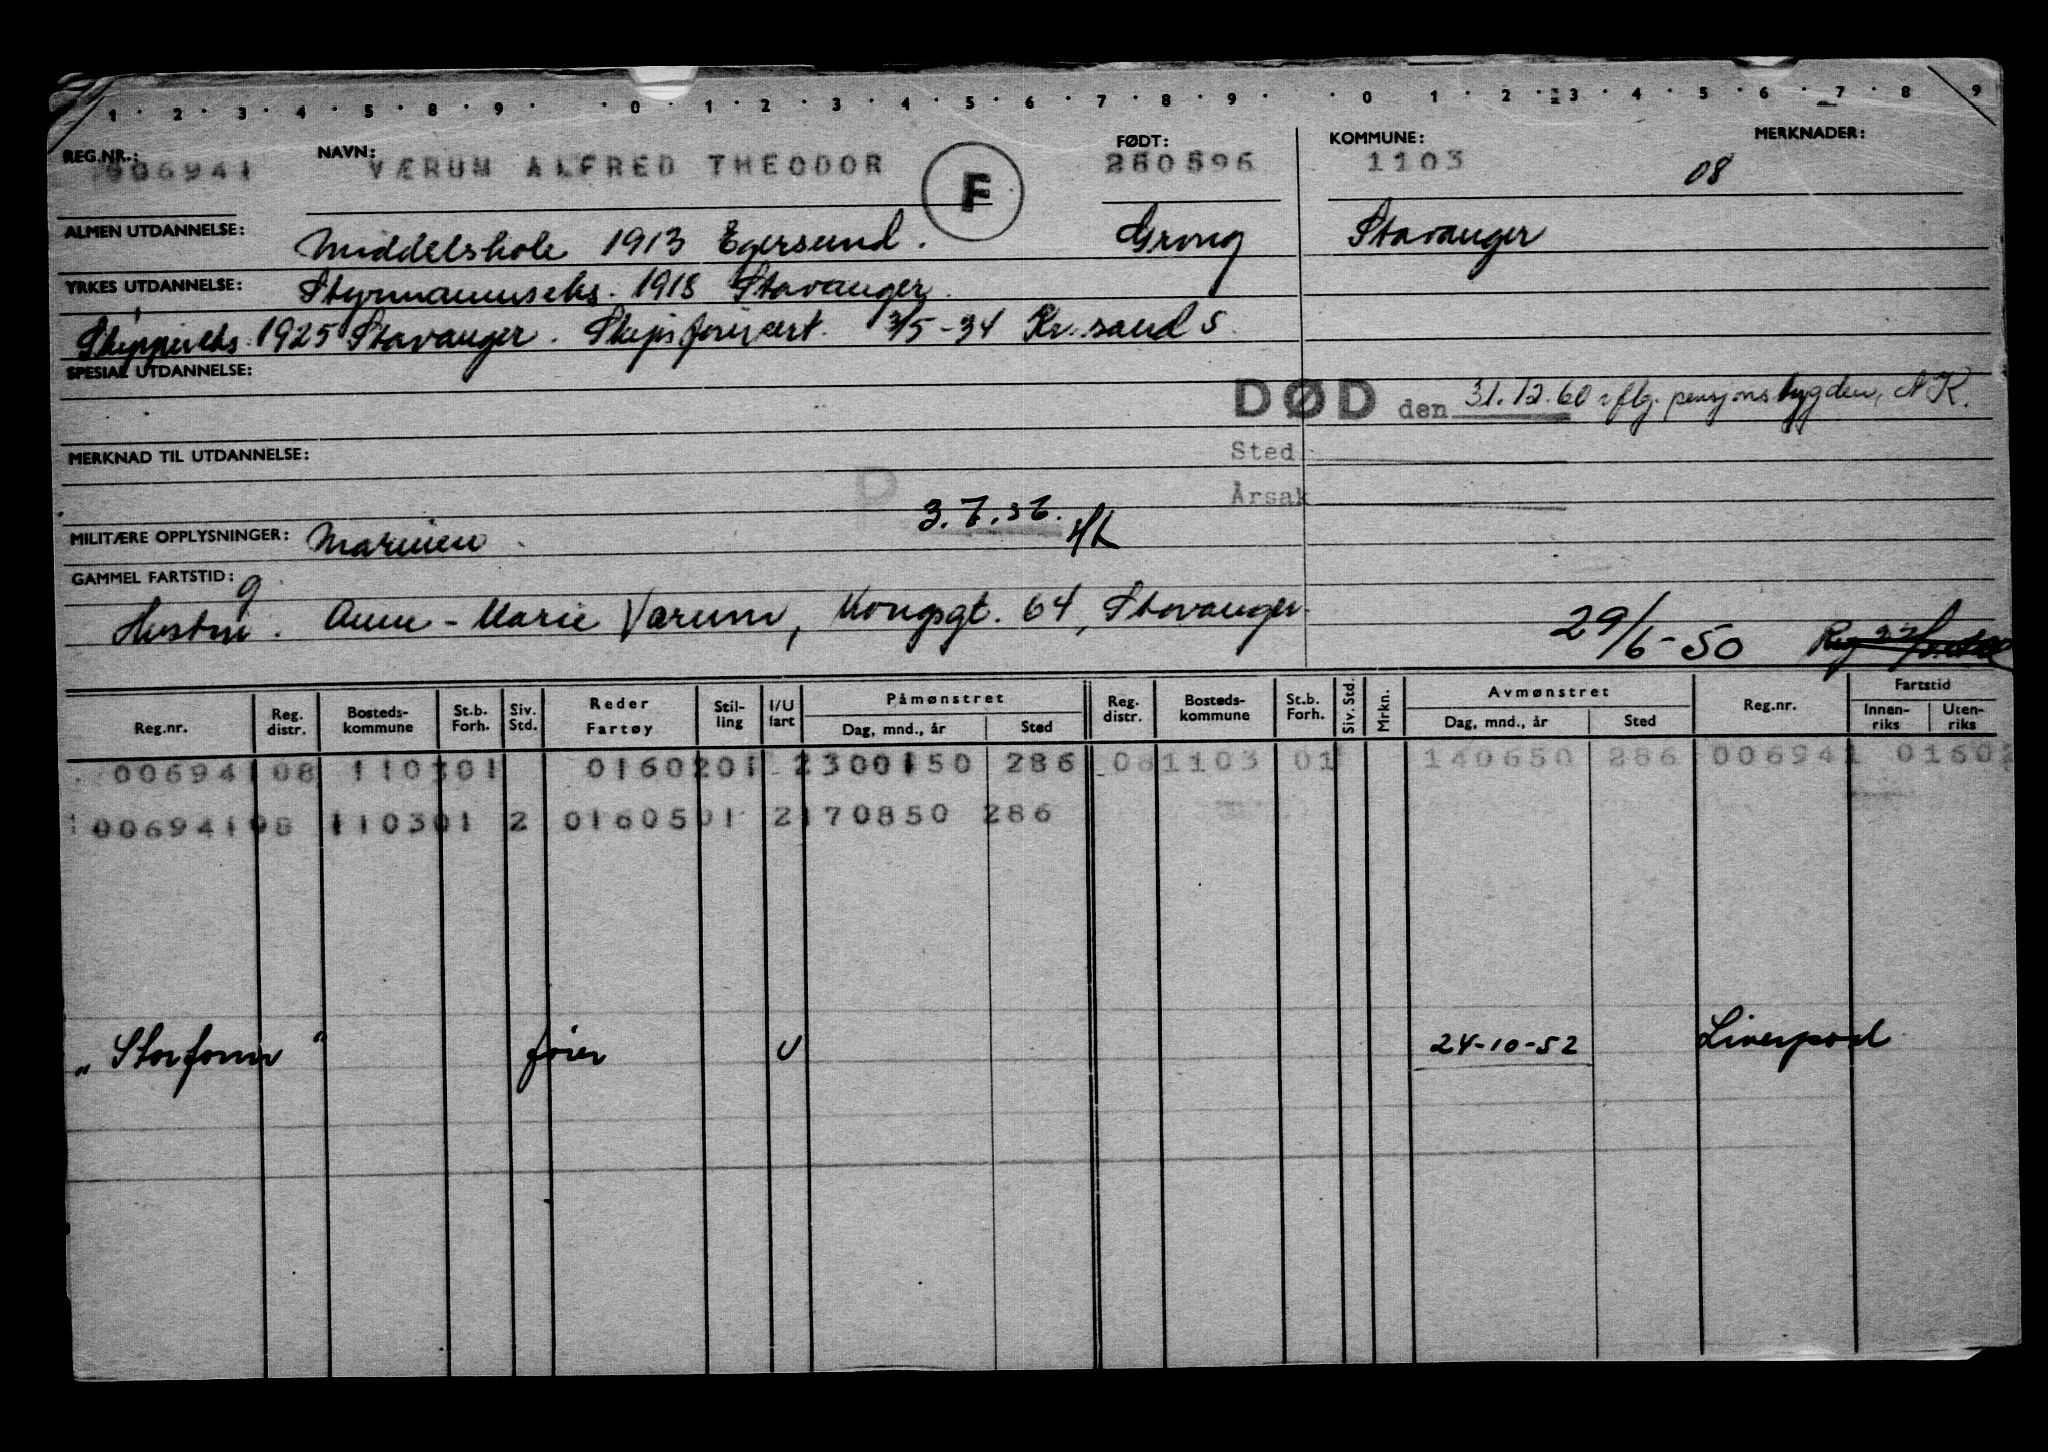 1 · 2 · 3 · 4 · 5 · 8 · 9 · · 0 · 1 · 2 · 3 · 4 · 5 · 6 · 7 · 8 · 9 · · 0 · 1 · 2 · 3 · 4 · 5 · 6 · 7 · 8 · 9
REG.NR.: 006941 NAVN: VÆRUM ALFRED THEODOR F FØDT: 280596 KOMMUNE: 1103 MERKNADER: 08
ALMEN UTDANNELSE: Middelskole 1913 Egersund. Grong Stavanger
YRKES UTDANNELSE: Styrmannseks. 1918 Stavanger.
Skippereks. 1925 Stavanger. Skipsførercert. 3/5-34 Kr.sand S.
SPESIAL UTDANNELSE:
DØD den 31.12.60 iflg. pensjonstrygden, AK.
MERKNAD TIL UTDANNELSE: Sted
P Årsak
MILITÆRE OPPLYSNINGER: Marinen 3.7.56. HK
GAMMEL FARTSTID: g
Hustru. Anne-Marie Værum, Kongsgt. 64, Stavanger. 29/6-50
Reg.nr. Reg. distr. Bosteds-kommune St.b. Forh. Siv. Std. Reder Fartøy Stil-ling I/U fart Påmønstret Dag, mnd., år Sted Reg. distr. Bosteds-kommune St.b. Forh. Siv. Std. Mrkn. Avmønstret Dag, mnd., år Sted Reg.nr. Fartstid Innen-riks Uten-riks
006941 08 1103 01 01602 01 2 300150 286 08 1103 01 140650 286 006941 01602
006941 08 1103 01 2 01605 01 2 170850 286
"Storfonn" fører U 24-10-52 Liverpool